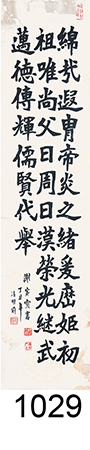 綿哉遐冑帝炎之緒爰啟姬初
祖唯尚父曰周曰漢榮光繼武
邁德傳輝儒賢代舉
1029